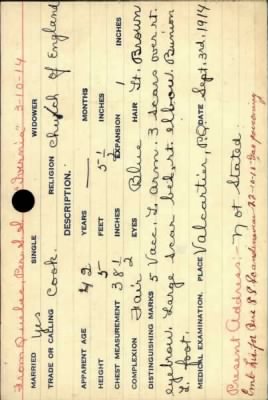 From Quebec, Per S.S. "Ivernia" 3-10-14
MARRIED Yes SINGLE WIDOWER
TRADE OR CALLING Cook. RELIGION Church of England
DESCRIPTION.
APPARENT AGE 42 YEARS MONTHS
HEIGHT 5 FEET 5 1/2 INCHES
CHEST MEASUREMENT 38 1/2 INCHES EXPANSION 1 INCHES
COMPLEXION Fair EYES Blue HAIR Lt. Brown
DISTINGUISHING MARKS 5 Vacc. L. arm. 3 scars over rt.
eyebrow. Large scar back rt. elbow. Bunion
L. foot.
MEDICAL EXAMINATION. PLACE Valcartier, P.Q. DATE Sept. 3rd. 1914
Present Address:- Not Stated
Emb. Per S.S. Scandinavian 22-10-15